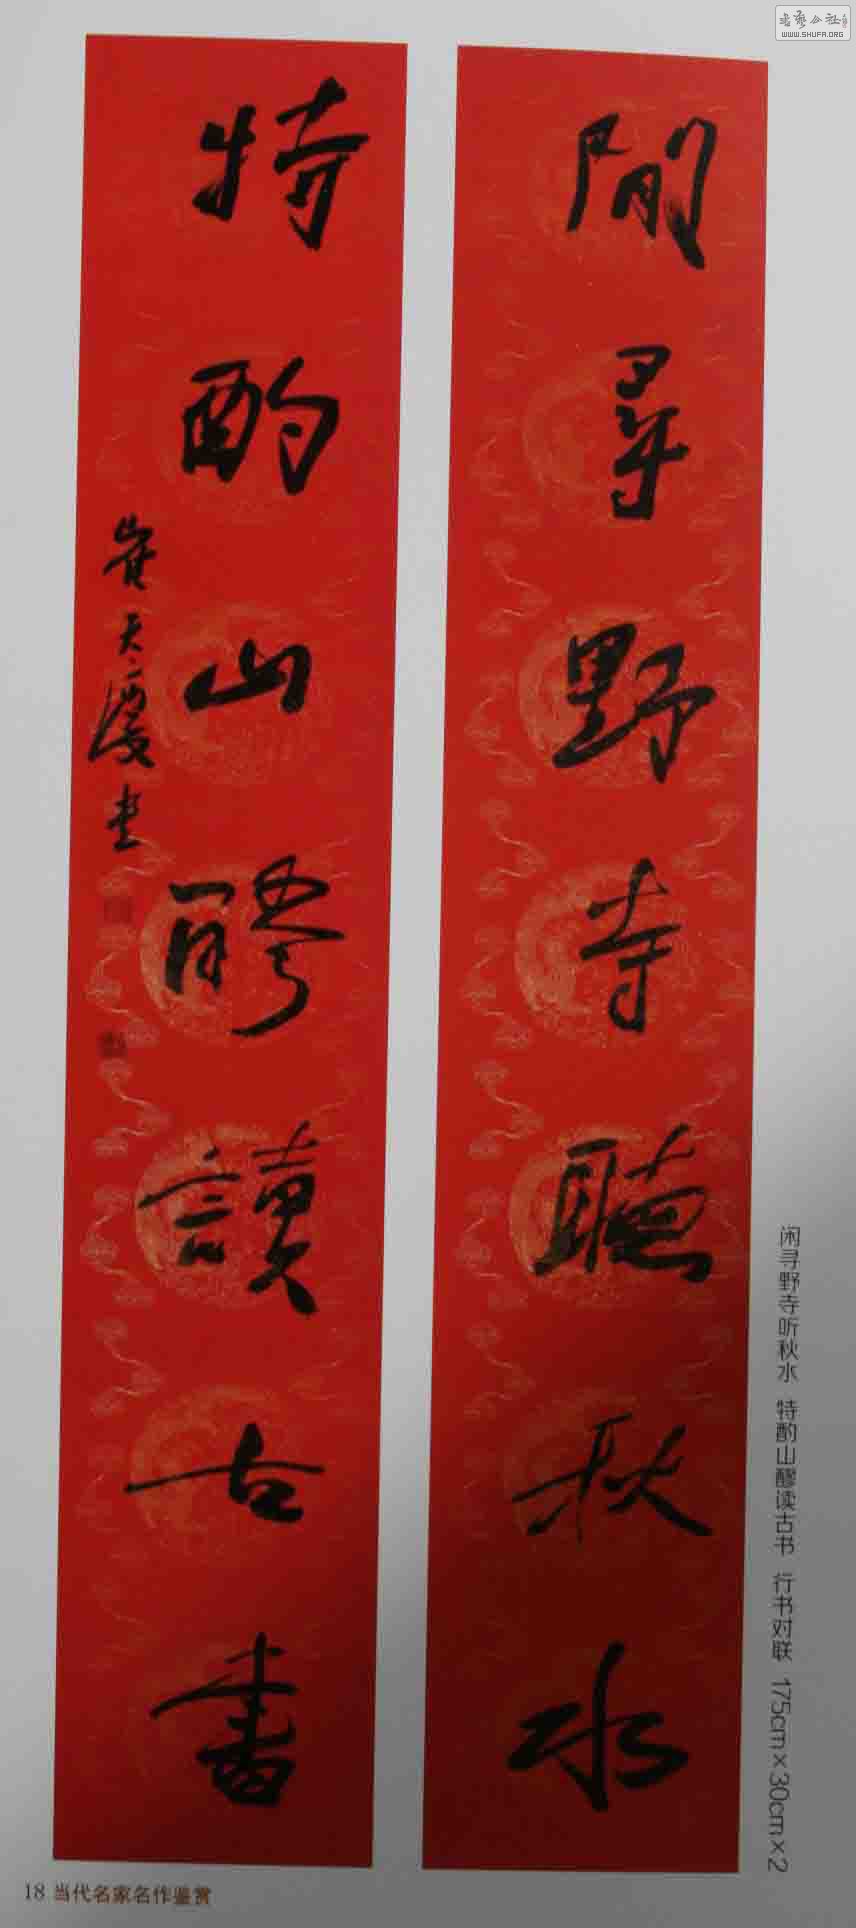 閒尋野寺聽秋水
特酌山醪讀古書
崔天慶書
闲寻野寺听秋水 特酌山醪读古书 行书对联 175cm×30cm×2
18 当代名家名作鉴赏
WWW.SHUFA.ORG